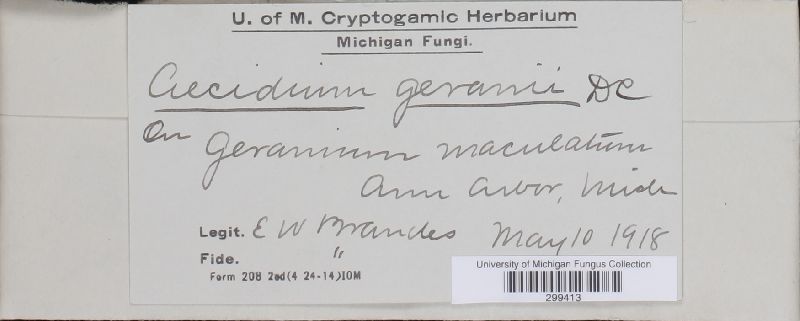 U. of M. Cryptogamic Herbarium
Michigan Fungi.
Aecidium geranii DC
On Geranium maculatum
Ann Arbor, Mich
Legit. E W Brandes May 10 1918
Fide. "
Form 208 2ed(4 24-14)10M
University of Michigan Fungus Collection
299413